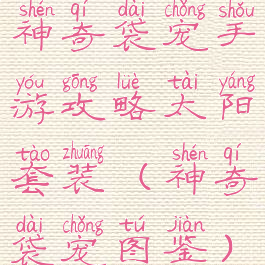 shén qí dài chǒng shǒu
神奇袋宠手
yóu gōng luè tài yáng
游攻略太阳
tào zhuāng shén qí
套装（神奇
dài chǒng tú jiàn
袋宠图鉴）